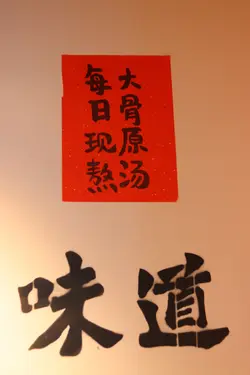 大骨原汤
每日现熬
味道